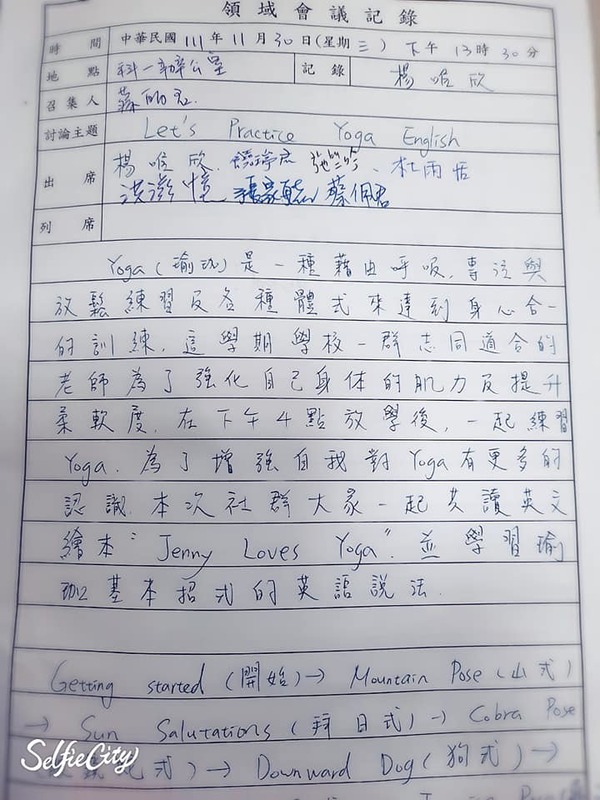 領域會議記錄
時間 中華民國 111 年 11 月 30 日(星期 三) 下午 13 時 30 分
地點 科一辦公室 記錄 楊唯欣
召集人 蔡佩君
討論主題 Let's Practice Yoga English
出席 楊唯欣 杜雨恬
蔡佩君
列席
Yoga(瑜珈)是一種藉由呼吸,專注與
放鬆練習及各種體式來達到身心合一
的訓練.這學期學校一群志同道合的
老師為了強化自己身体的肌力及提升
柔軟度.在下午4點放學後,一起練習
Yoga.為了增強自我對Yoga有更多的
認識.本次社群大家一起共讀英文
繪本"Jenny Loves Yoga".並學習瑜
珈基本招式的英語說法.
Getting started (開始)→ Mountain Pose (山式)
→ Sun Salutations (拜日式)→ Cobra Pose
式)→ Downward Dog (狗式)→
SelfieCity